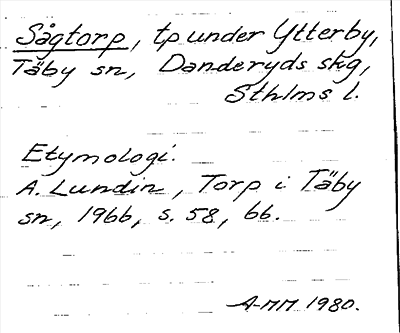 Sågtorp, tp under Ytterby,
Täby sn, Danderyds skg,
Sthlms l.
Etymologi.
A. Lundin, Torp i Täby
sn, 1966, s. 58, 66.
A-MM 1980.